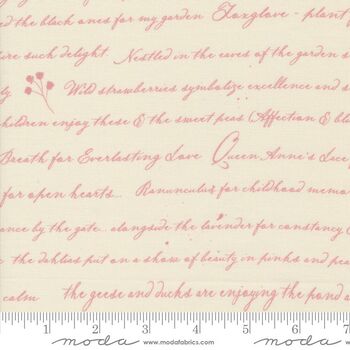 ed the black ones for my garden Foxglove - plant
ure such delight. Nestled in the eaves of the garden s
ly Wild strawberries symbolize excellence and s
children enjoy these & the sweet peas (Affection & bl
Breath for Everlasting Love Queen Anne's Lace f
for open hearts... Ranunculus for childhood memo
ance by the gate... alongside the lavender for constancy &
the dahlias put on a show of beauty in pinks and pea
calm the geese and ducks are enjoying the pond a
1 2 3 4 5 6 7
moda www.modafabrics.com moda